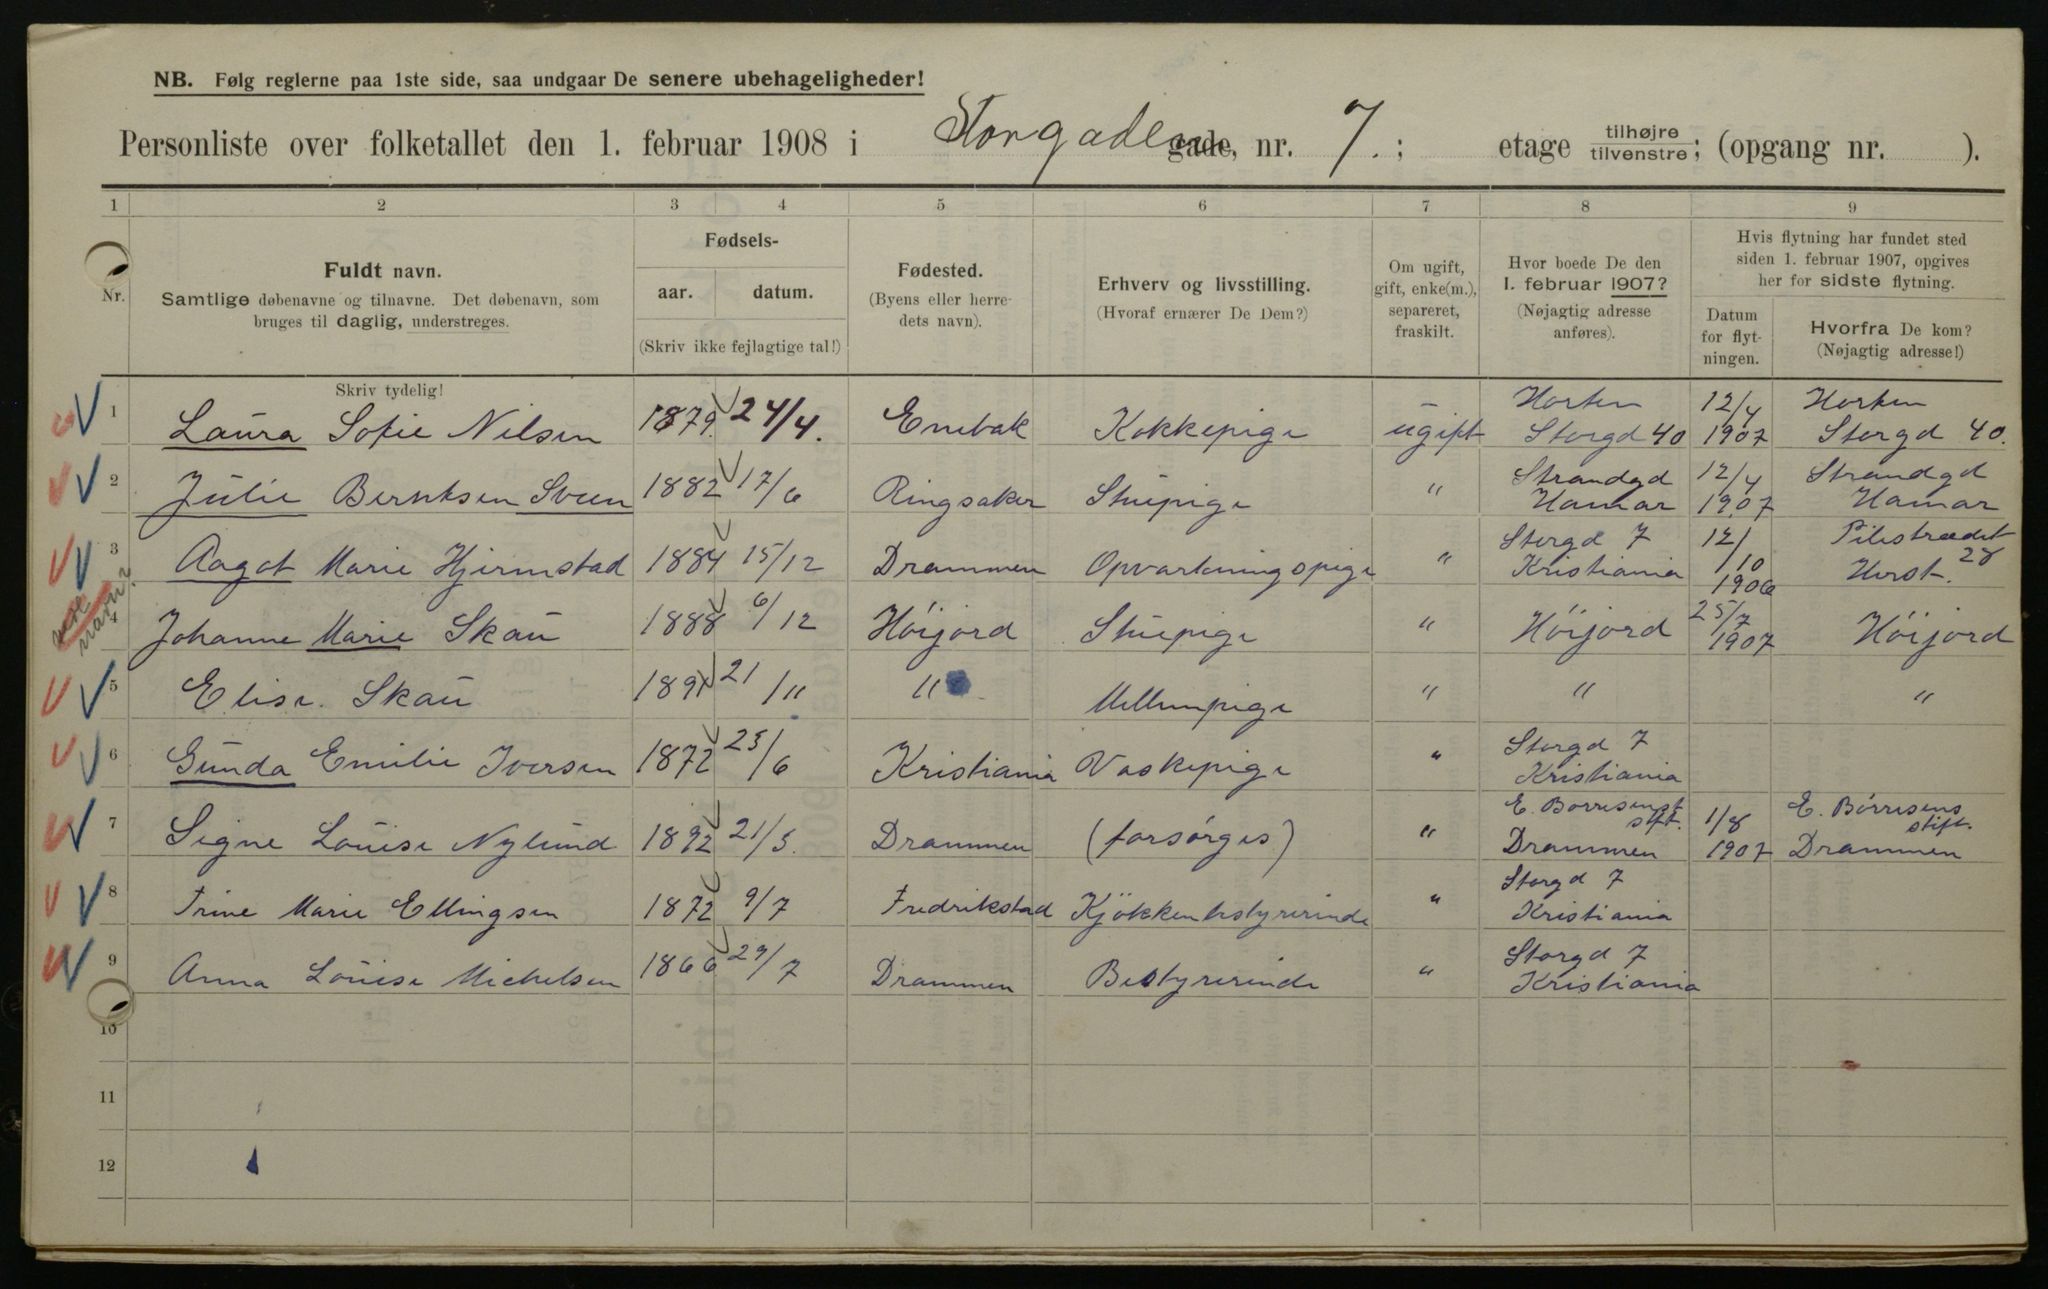 NB. Følg reglerne paa 1ste side, saa undgaar De senere ubehageligheder!
Personliste over folketallet den 1. februar 1908 i Storgaden gade, nr. 7. ; etage tilhøjre/tilvenstre; (opgang nr. ).
1 2 3 4 5 6 7 8 9
Nr.
Fuldt navn.
Samtlige døbenavne og tilnavne. Det døbenavn, som
bruges til daglig, understreges.
Skriv tydelig!
Fødsels-
aar. datum.
(Skriv ikke fejlagtige tal!)
Fødested.
(Byens eller herre-
dets navn).
Erhverv og livsstilling.
(Hvoraf ernærer De Dem?)
Om ugift,
gift, enke(m.),
separeret,
fraskilt.
Hvor boede De den
1. februar 1907?
(Nøjagtig adresse
anføres).
Hvis flytning har fundet sted
siden 1. februar 1907, opgives
her for sidste flytning.
Datum
for flyt-
ningen.
Hvorfra De kom?
(Nøjagtig adresse!)
1 Laura Sofie Nilsen 1879 24/4. Enebak Kokkepige ugift Horten Storgd 40 12/4 1907 Horten Storgd 40.
2 Julie Berntsen Sveen 1882 17/6 Ringsaker Stuepige " Strandgd Hamar 12/4 1907 Strandgd Hamar
3 Aagot Marie Hjermstad 1884 15/12 Drammen Opvartningspige " Storgd 7 Kristiania 12/10 1906 Pilestrædet 28
4 Johanne Marie Skau 1888 6/12 Höijord Stuepige " Höijord 25/7 1907 Höijord
5 Elise Skau 1891 21/11 " Mellempige " " "
6 Gunda Emilie Iversen 1872 23/6 Kristiania Vaskepige " Storgd 7 Kristiania
7 Signe Louise Nylund 1892 21/5. Drammen (forsørges) " E. Borresens stift. Drammen 1/8 1907 E. Börresens stift. Drammen
8 Trine Marie Ellingsen 1872 9/7 Fredrikstad Kjökkenbestyrerinde " Storgd 7 Kristiania
9 Anna Louise Michelsen 1866 29/7 Drammen Bestyrerinde " Storgd 7 Kristiania
10
11
12